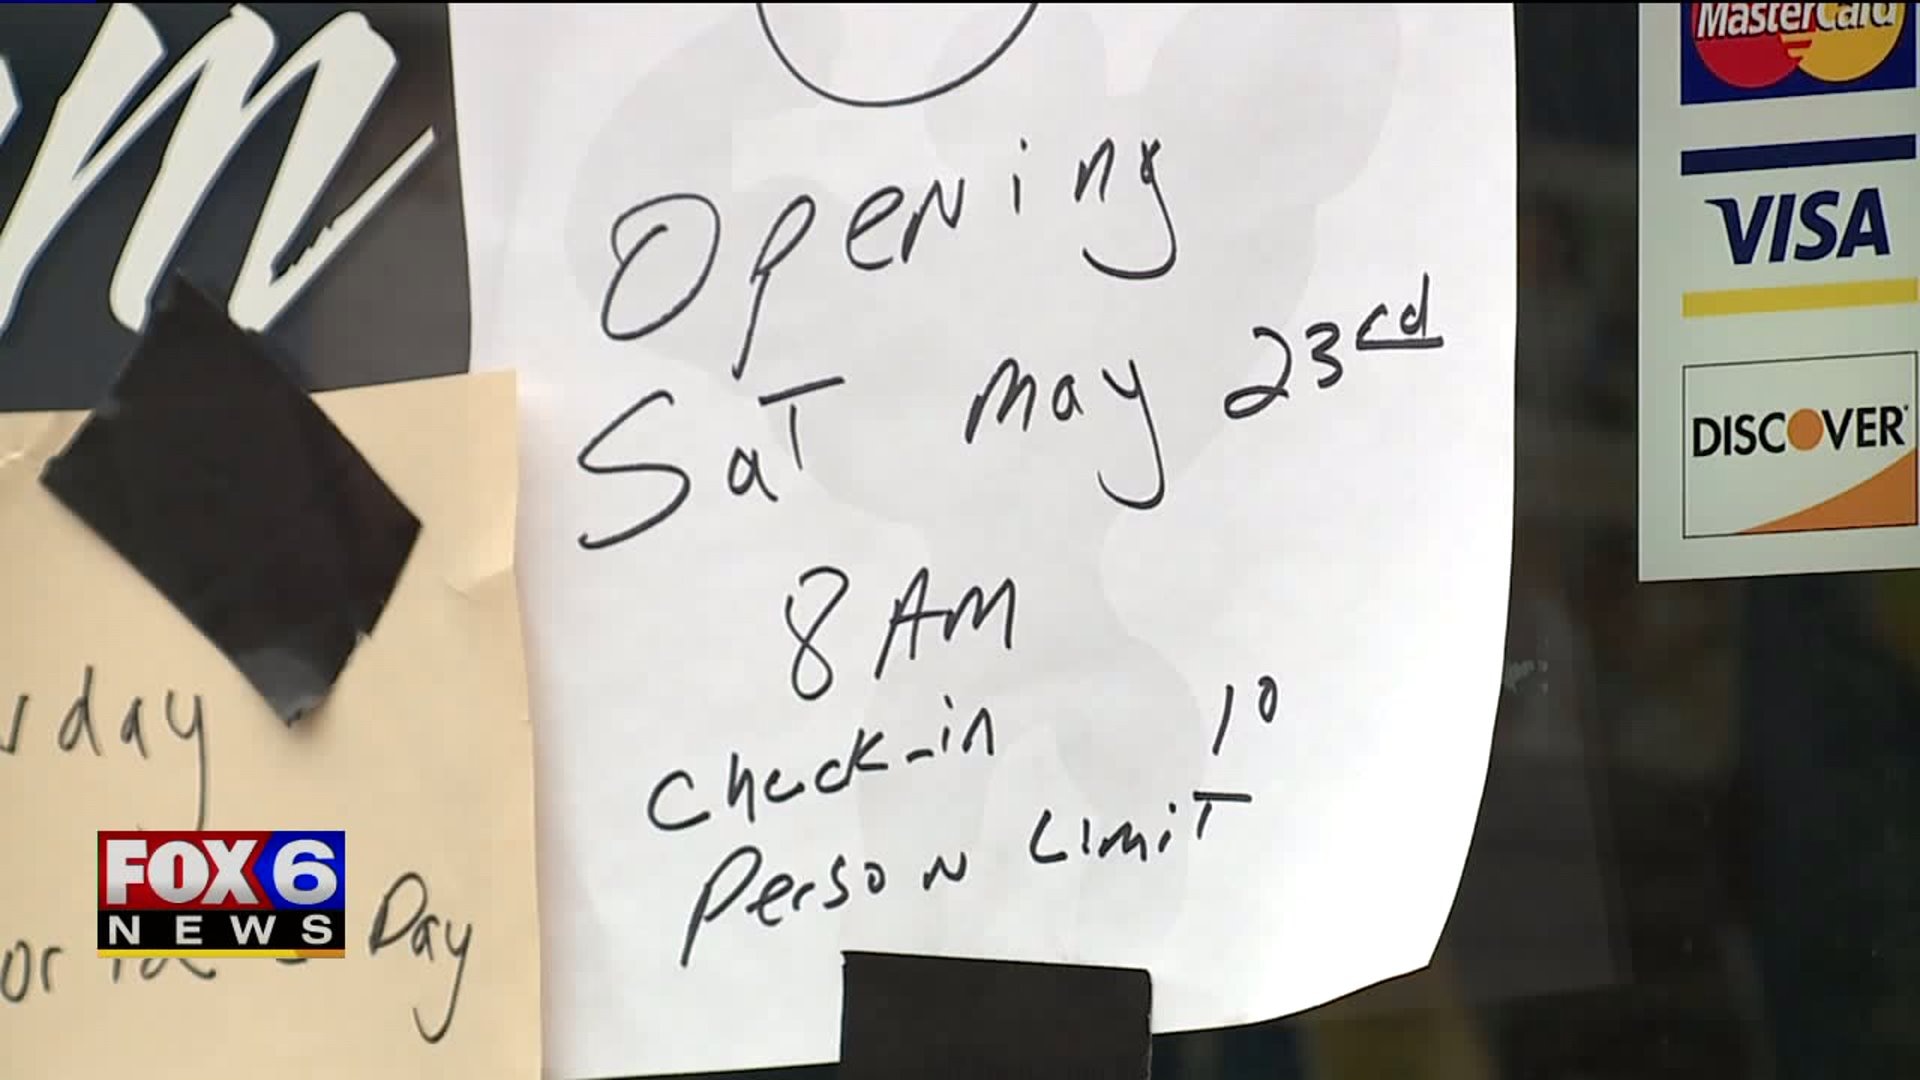 m
MasterCard
VISA
DISCOVER
Opening
Sat May 23rd
8 AM
Check-in 10
Person Limit
day
Day
or
FOX 6
NEWS